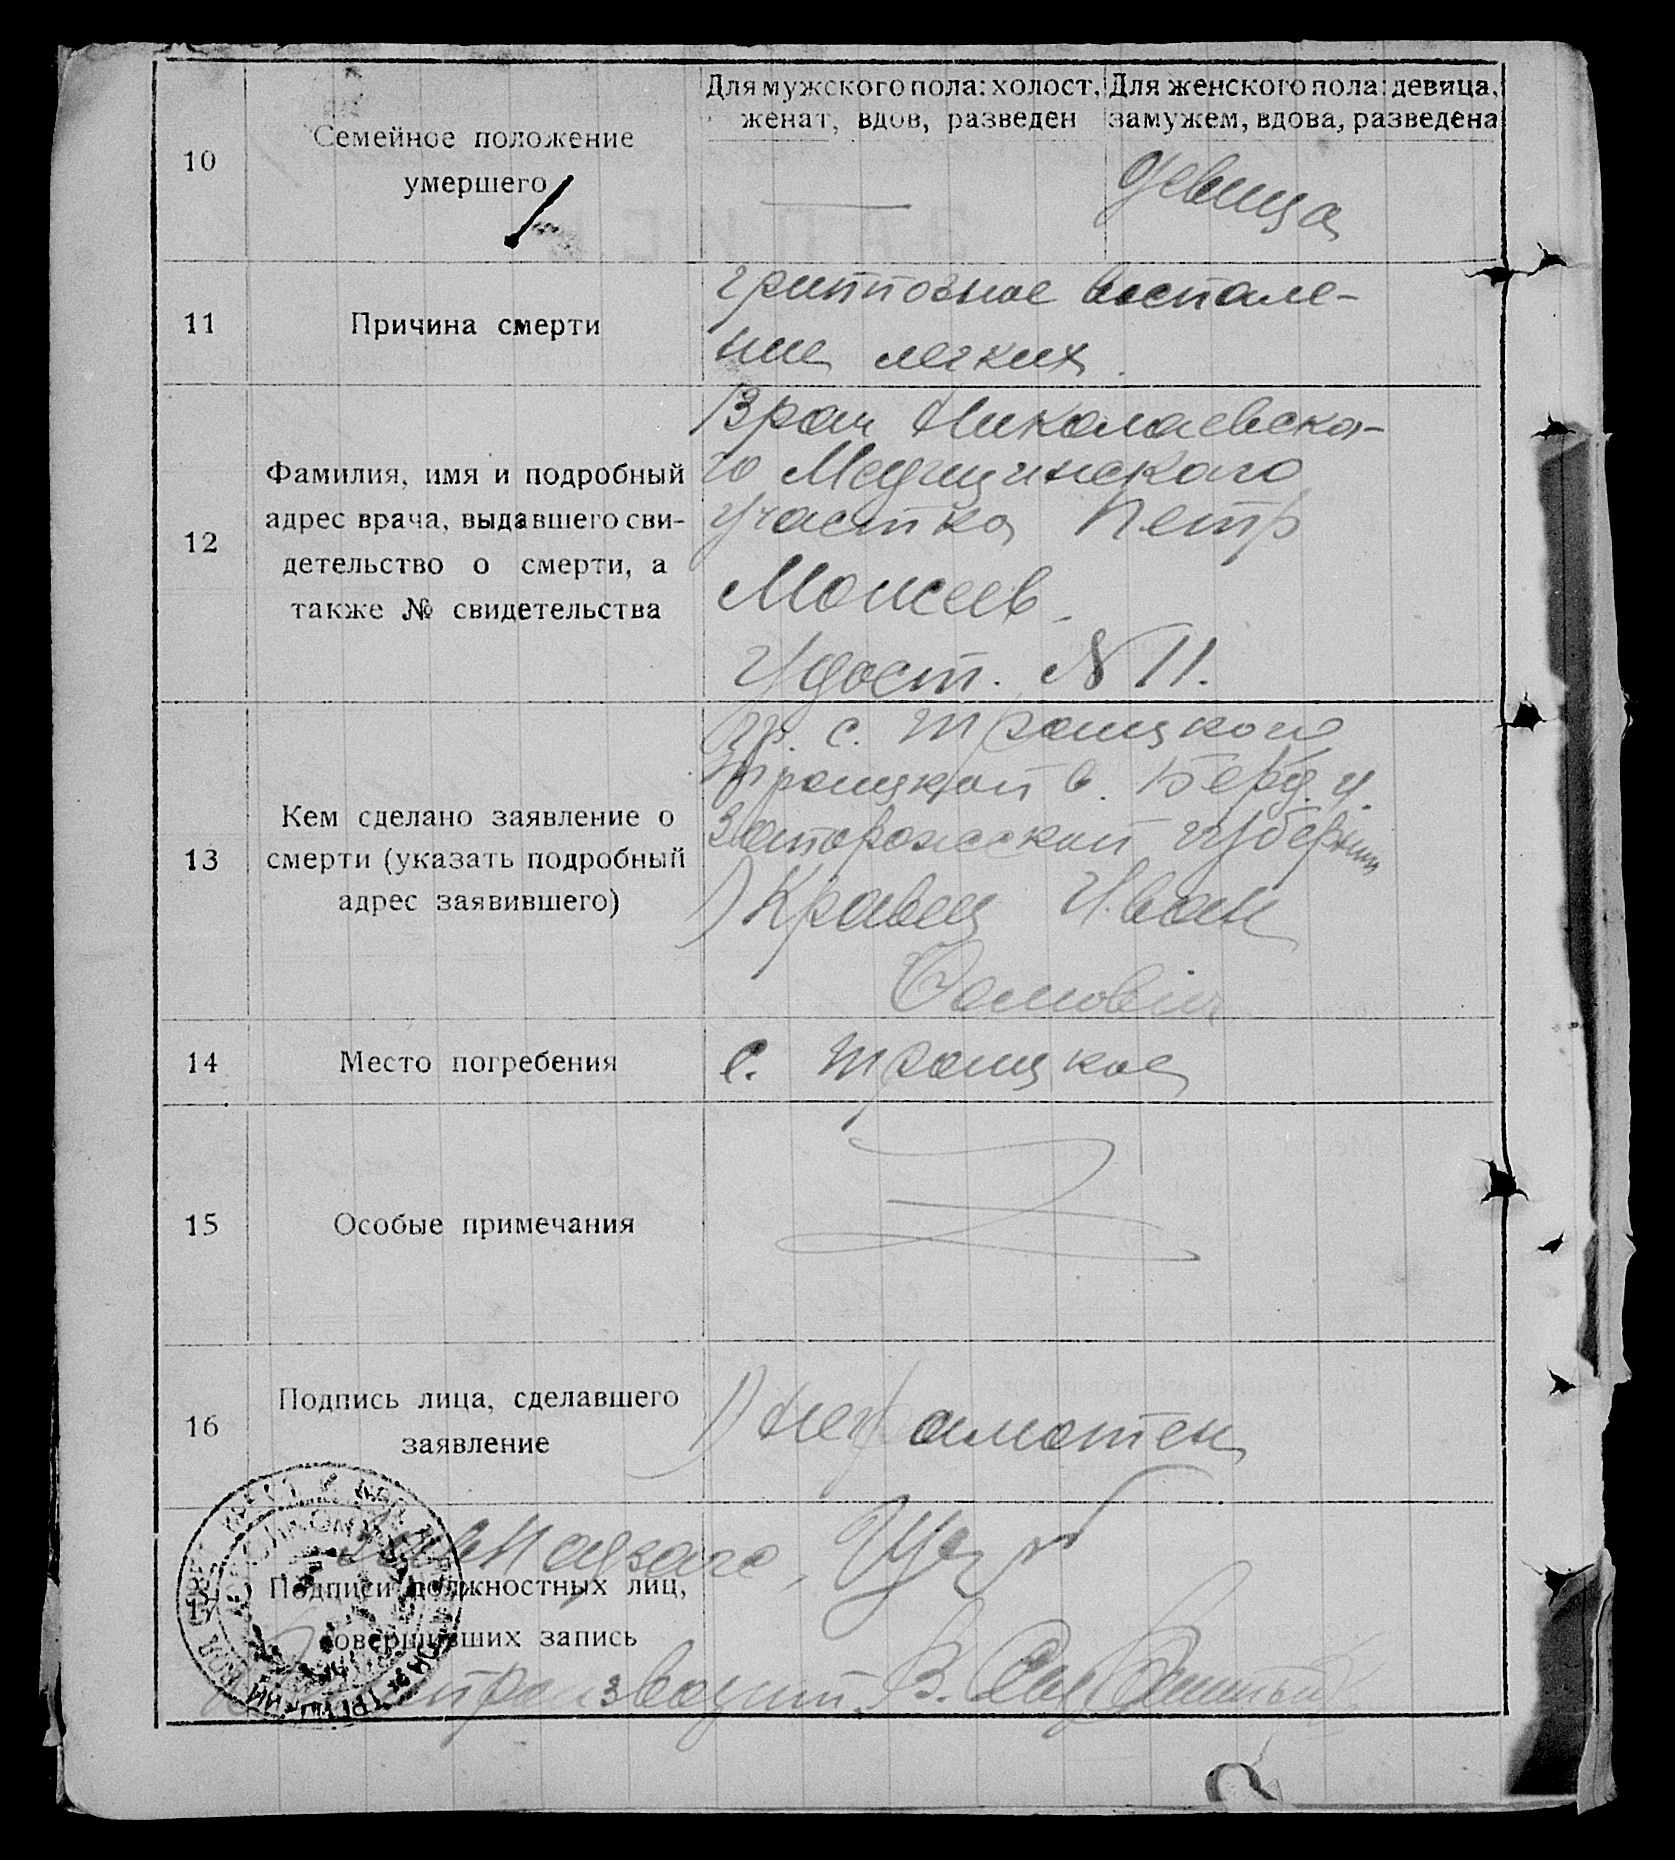 Для мужского пола: холост, женат, вдов, разведен
Для женского пола: девица, замужем, вдова, разведена
10
Семейное положение
умершего
девица
11
Причина смерти
гриппозное воспале-
ние легких
12
Фамилия, имя и подробный
адрес врача, выдавшего сви-
детельство о смерти, а
также № свидетельства
Врач Николаевска-
го Медицинского
участка Петр
Моисеев
Удост. N 11.
13
Кем сделано заявление о
смерти (указать подробный
адрес заявившего)
гр. с. Троицкого
Троицкой в. Берд. у.
Запорожской губернии
1) Кравец Иван
14
Место погребения
с. Троицкое
15
Особые примечания
16
Подпись лица, сделавшего
заявление
1) неграмотен
17
Подписи должностных лиц,
совершивших запись
Зав Подзагс,